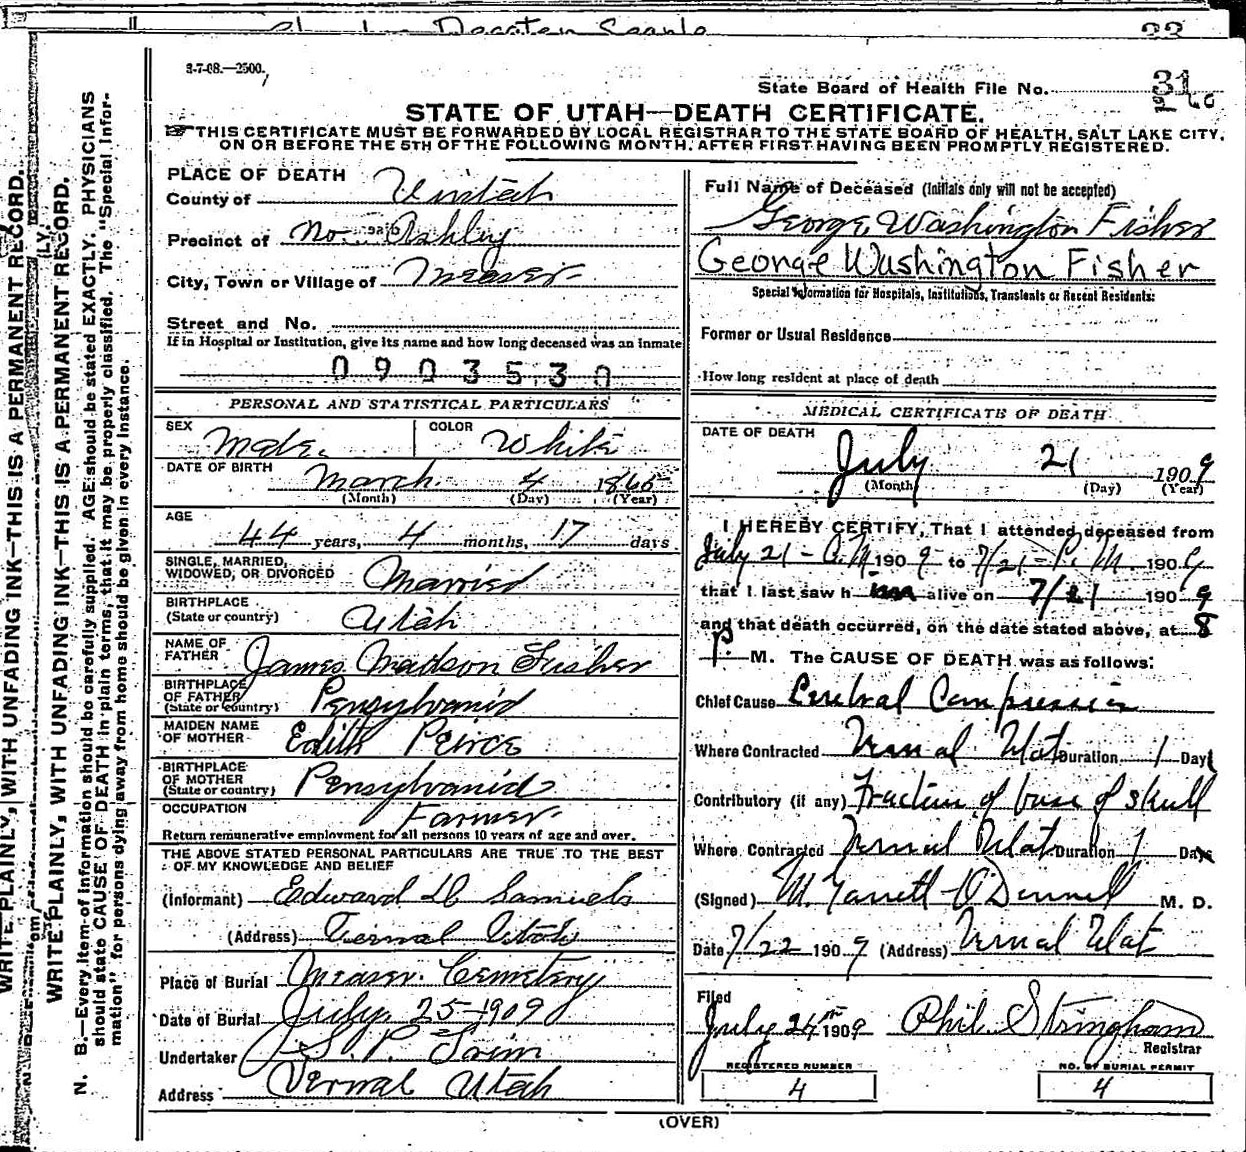 3-7-08.—2500.
State Board of Health File No. 31
STATE OF UTAH—DEATH CERTIFICATE.
THIS CERTIFICATE MUST BE FORWARDED BY LOCAL REGISTRAR TO THE STATE BOARD OF HEALTH, SALT LAKE CITY,
ON OR BEFORE THE 5TH OF THE FOLLOWING MONTH, AFTER FIRST HAVING BEEN PROMPTLY REGISTERED.
WRITE PLAINLY, WITH UNFADING INK—THIS IS A PERMANENT RECORD.
WRITE PLAINLY, WITH UNFADING INK—THIS IS A PERMANENT RECORD.
N. B.—Every item of information should be carefully supplied. AGE should be stated EXACTLY. PHYSICIANS
should state CAUSE OF DEATH in plain terms, that it may be properly classified. The "Special Infor-
mation" for persons dying away from home should be given in every instance.
PLACE OF DEATH
County of Uintah
Precinct of No. Ashley
City, Town or Village of Measer
Street and No.
If in Hospital or Institution, give its name and how long deceased was an inmate
0 9 0 3 5 3 0
PERSONAL AND STATISTICAL PARTICULARS
SEX Male COLOR White
DATE OF BIRTH
March 4 1865
(Month) (Day) (Year)
AGE
44 years, 4 months, 17 days
SINGLE, MARRIED,
WIDOWED, OR DIVORCED Married
BIRTHPLACE
(State or country) Utah
NAME OF
FATHER James Madson Fisher
BIRTHPLACE
OF FATHER
(State or country) Pensylvania
MAIDEN NAME
OF MOTHER Edith Peirce
BIRTHPLACE
OF MOTHER
(State or country) Pensylvania
OCCUPATION Farmer
Return remunerative employment for all persons 10 years of age and over.
THE ABOVE STATED PERSONAL PARTICULARS ARE TRUE TO THE BEST
OF MY KNOWLEDGE AND BELIEF
(Informant) Edward D Samuels
(Address) Vernal Utah
Place of Burial Measer Cemetery
Date of Burial July 25 1909
Undertaker S. P.
Address Vernal Utah
Full Name of Deceased (Initials only will not be accepted)
George Washington Fisher
George Washington Fisher
Special Information for Hospitals, Institutions, Transients or Recent Residents:
Former or Usual Residence
How long resident at place of death
MEDICAL CERTIFICATE OF DEATH
DATE OF DEATH
July 21 1909
(Month) (Day) (Year)
I HEREBY CERTIFY, That I attended deceased from
July 21 - A.M. 1909 to 7/21 - P.M. 1909
that I last saw him alive on 7/21 1909
and that death occurred, on the date stated above, at 8
P. M. The CAUSE OF DEATH was as follows:
Chief Cause Cerebral Compression
Where Contracted Vernal Utah Duration 1 Day
Contributory (if any) Fracture of base of skull
Where Contracted Vernal Utah Duration 1 Days
(Signed) M. Garrett O'Donnell M. D.
Date 7/22 1909 (Address) Vernal Utah
Filed
July 24th 1909 Phil Stringham
Registrar
REGISTERED NUMBER
4
NO. OF BURIAL PERMIT
4
(OVER)